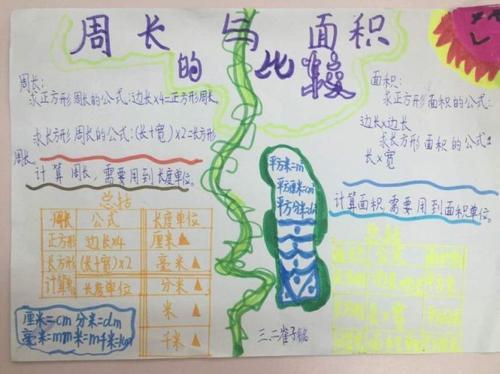 周长与面积
的比较
周长:
求正方形周长的公式:边长×4=正方形周长
求长方形周长的公式:(长+宽)×2=长方形
周长。
计算周长,需要用到长度单位。
总结
周长 公式 长度单位
正方形 边长×4 厘米▲
长方形 (长+宽)×2 毫米▲
计算 长度单位 分米▲
米▲
千米▲
厘米=cm 分米=dm
毫米=mm 米=m 千米=km
平方米=m
平方厘米=cm
平方分米=dm
面积:
求正方形面积的公式:
边长×边长
求长方形面积的公式:
长×宽
计算面积需要用到面积单位。
总结
三、二崔子